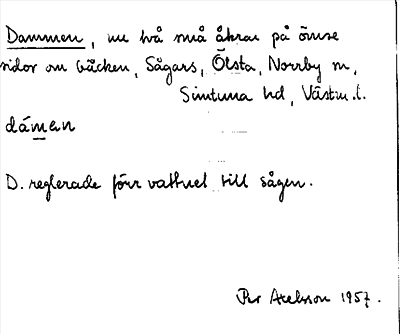 Dammen, nu två små åkrar på ömse
sidor om bäcken, Sågars, Ölsta, Norrby sn,
Simtuna hd, Västm. l.
dámen
D. reglerade förr vattnet till sågen.
Per Axelsson 1957.